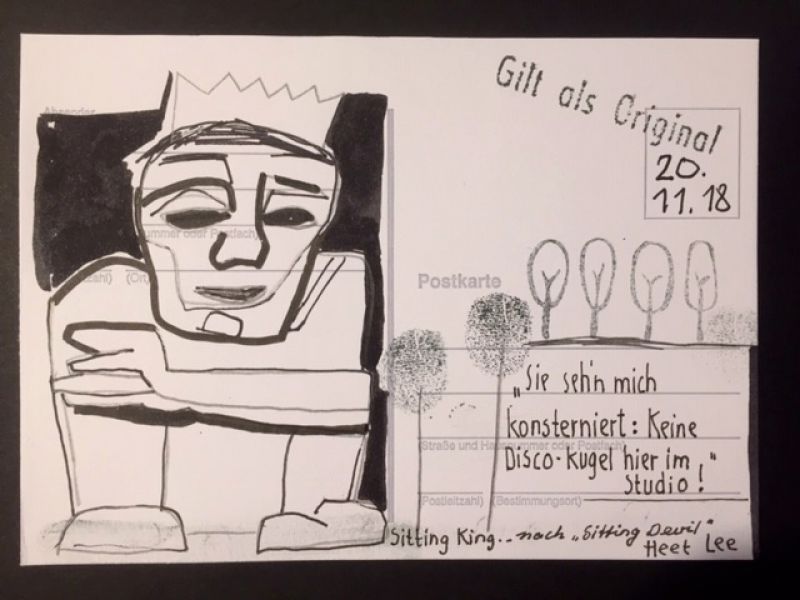 Absender
Gilt als Original
20.
11.18
ummer oder Postfach)
zahl) (Ort)
Postkarte
„Sie seh'n mich
konsterniert: Keine
(Straße und Hausnummer oder Postfach)
Disco-Kugel hier im
Studio!"
(Postleitzahl) (Bestimmungsort)
Sitting King.. nach „Sitting Devil"
Heet Lee